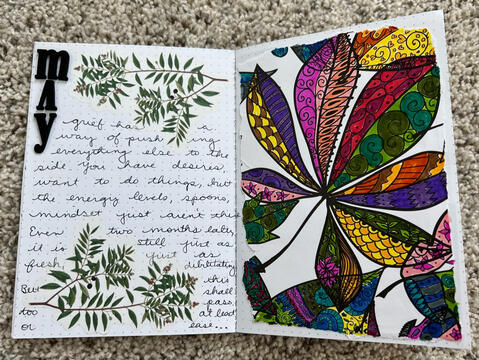 may
grief has a
way of push ing
everything else to the
side. You have desires,
want to do things, but
the energy levels, spoons,
mindset just aren't there.
Even two months later,
it is still just as
fresh, just as debilitating
But this
too shall
or pass,
at least
ease...